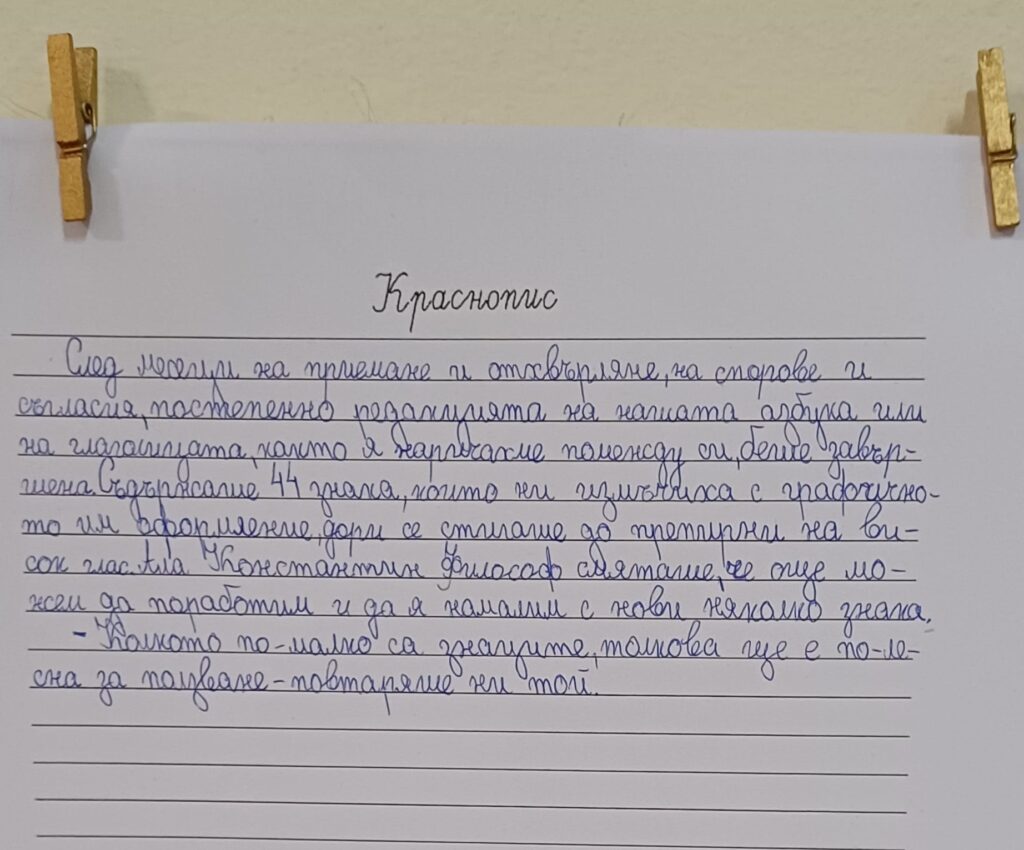 Краснопис
След месеци на приемане и отхвърляне, на спорове и
съгласия, постепенно редакцията на нашата азбука или
на глаголицата, както я наричахме помежду си, беше завър-
шена. Съдържаше 44 знака, които ни измъчиха с графично-
то им оформление, дори се стигаше до препирни на ви-
сок глас. Ала Константин Философ смяташе, че още мо-
жем да поработим и да я намалим с нови няколко знака.
- Колкото по-малко са знаците, толкова ще е по-ле-
сна за ползване - повтаряше ни той.